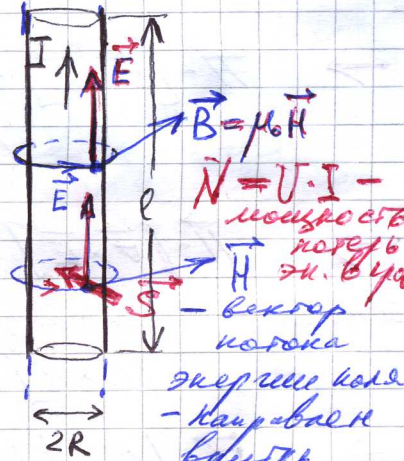 I
E⃗
B⃗ = μ₀H⃗
N = U·I –
мощность
потерь
эн. в
E⃗
l
H⃗
S⃗
– вектор
потока
энергии поля
– направлен
внутрь
2R